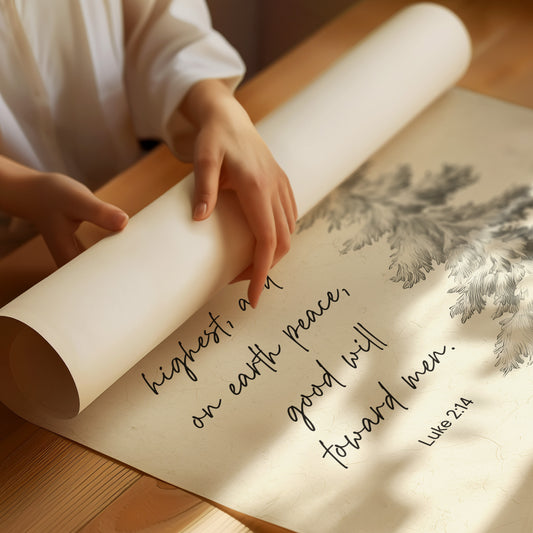 highest,
on earth peace,
good will
toward men.
Luke 2:14